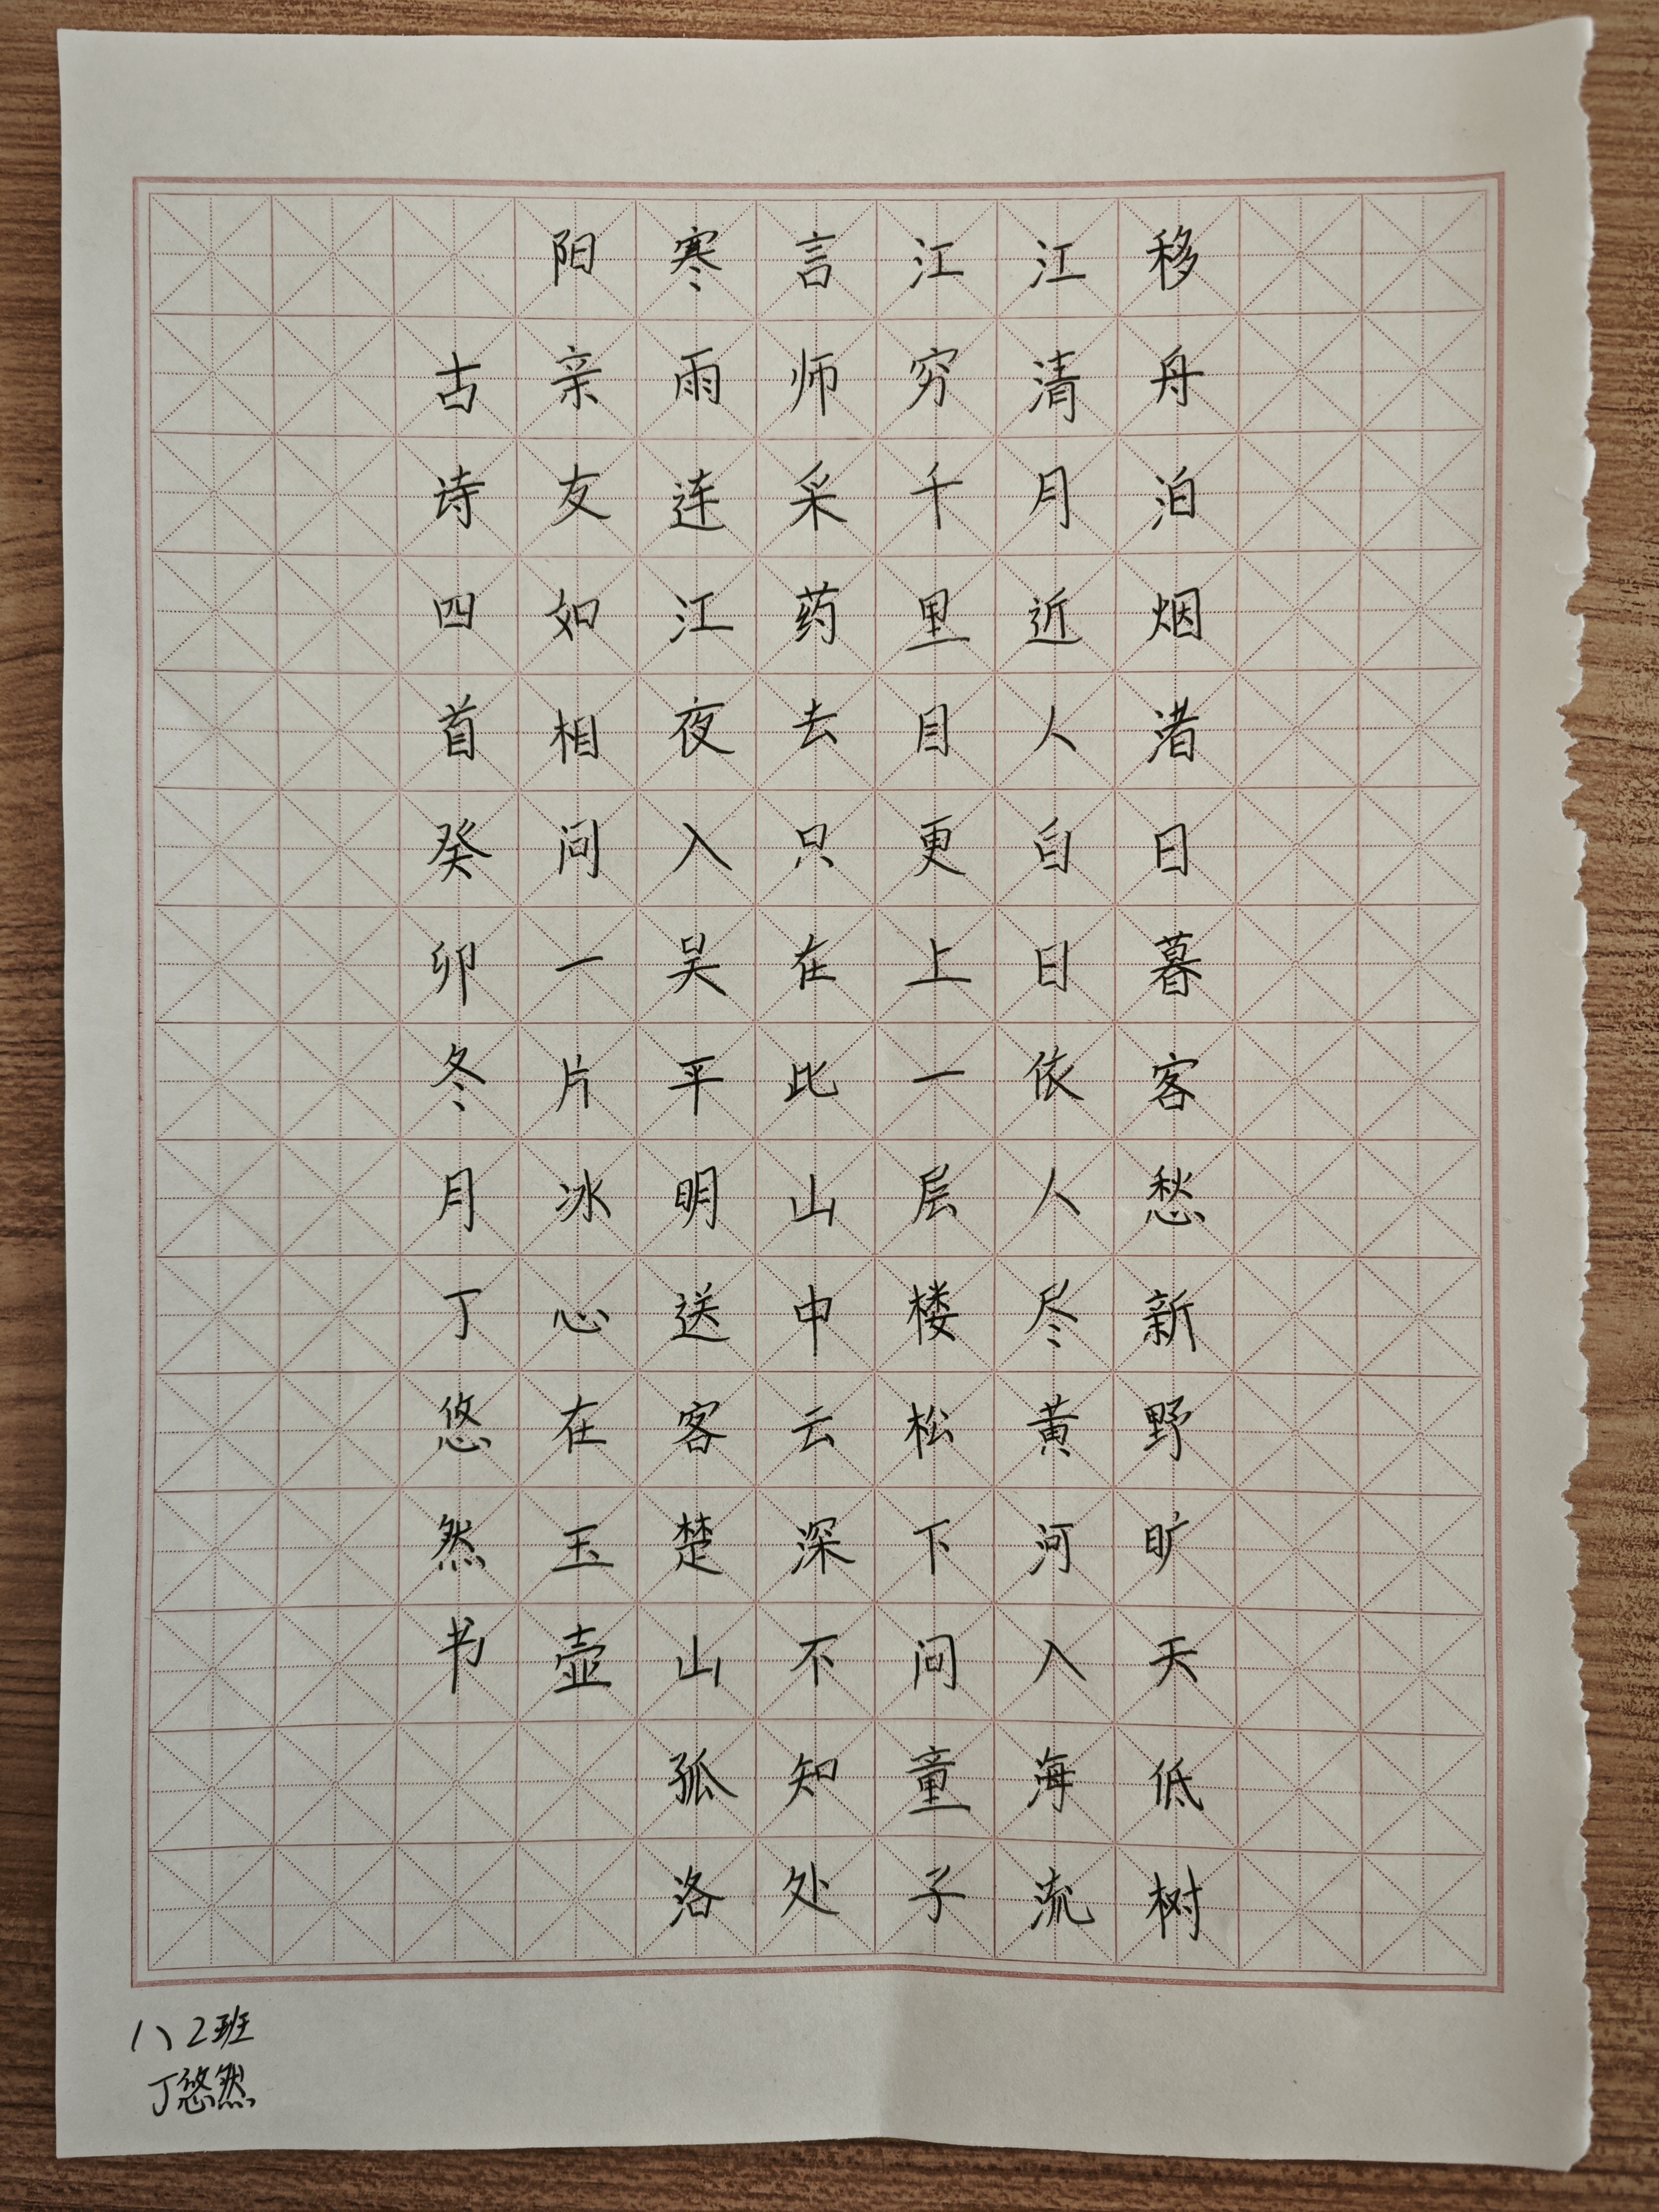 移舟泊烟渚日暮客愁新野旷天低树
江清月近人白日依人尽黄河入海流
江穷千里目更上一层楼松下问童子
言师采药去只在此山中云深不知处
寒雨连江夜入吴平明送客楚山孤洛
阳亲友如相问一片冰心在玉壶
古诗四首癸卯冬月丁悠然书
八2班
丁悠然